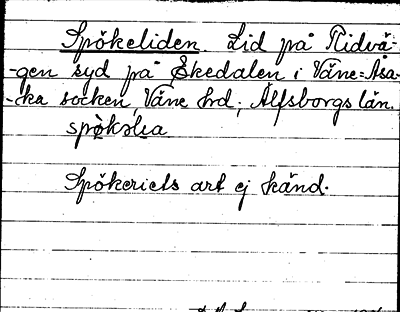 Spökeliden. Lid på Ridvä-
-gen syd på Skedalen i Väne=Åsa-
-ka socken, Väne hd., Älfsborgs län.
Spökeriets art ej känd.